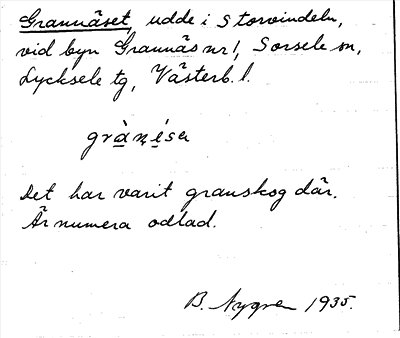 Grannäset, udde i Storvindeln,
vid byn Grannäs nr 1, Sorsele sn,
Lycksele tg, Västerb. l.
grànésa
Det har varit granskog där.
Är numera odlad.
B. Nygren 1935.